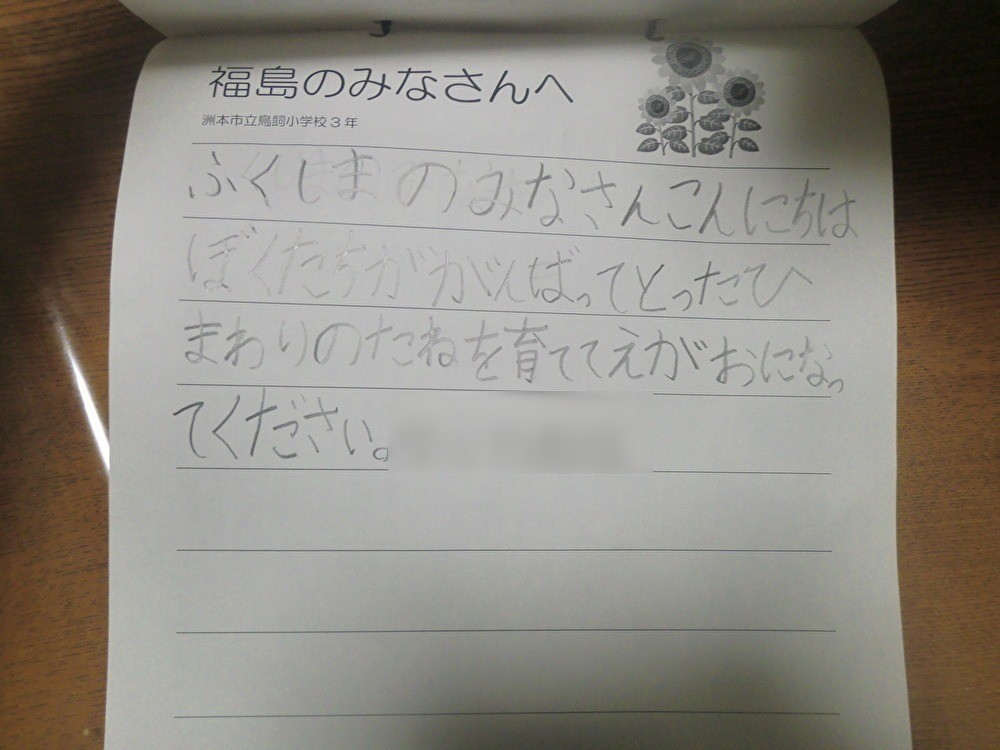 福島のみなさんへ
洲本市立鳥飼小学校3年
ふくしまのみなさんこんにちは
ぼくたちががんばってとったひ
まわりのたねを育ててえがおになっ
てください。